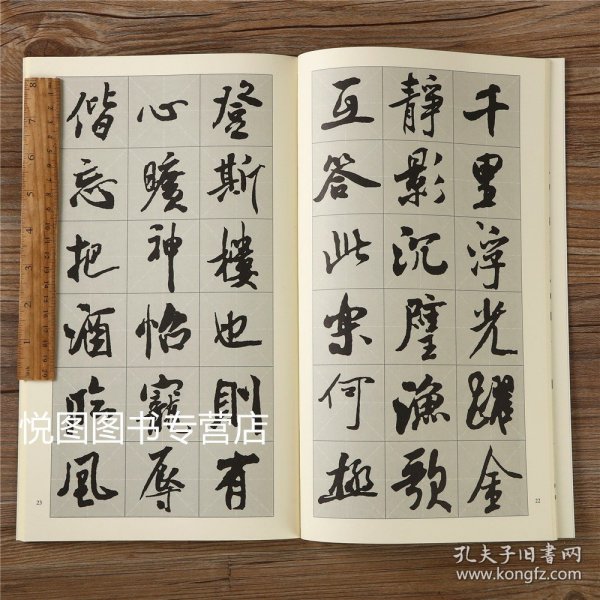 千里浮光躍金
靜影沉璧漁歌
互答此樂何極
22
登斯樓也則有
心曠神怡寵辱
偕忘把酒臨風
23
悦图图书专营店
孔夫子旧书网
www.kongfz.com